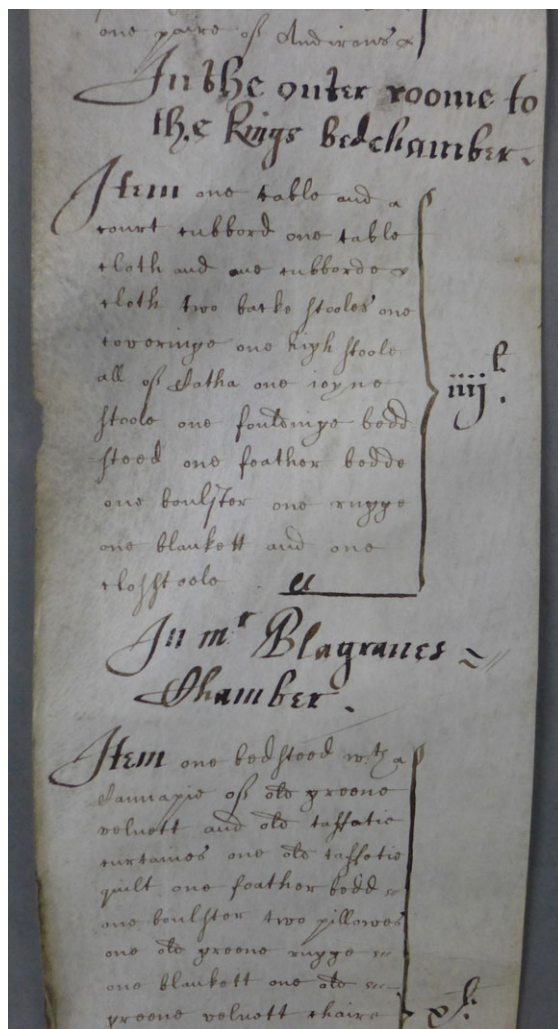 one paire of Andirons &
In the outer roome to
the Kings bedchamber.
Item one table and a
court cubbord one table
cloth and one cubborde
cloth two backe stooles one
coveringe one high stoole
all of one ioyne
stoole one fouldinge bedd
steed one feather bedde
one boulster one rugge
one blankett and one
closstoole
iiijl.
In mr Blagraves
Chamber.
Item one bedsteed wth a
Cannapie of old greene
velvett and old taffatie
curtaines one old taffatie
quilt one feather bedd
one boulster two pillowes
one old greene rugge
one blankett one old
greene velvett chaire